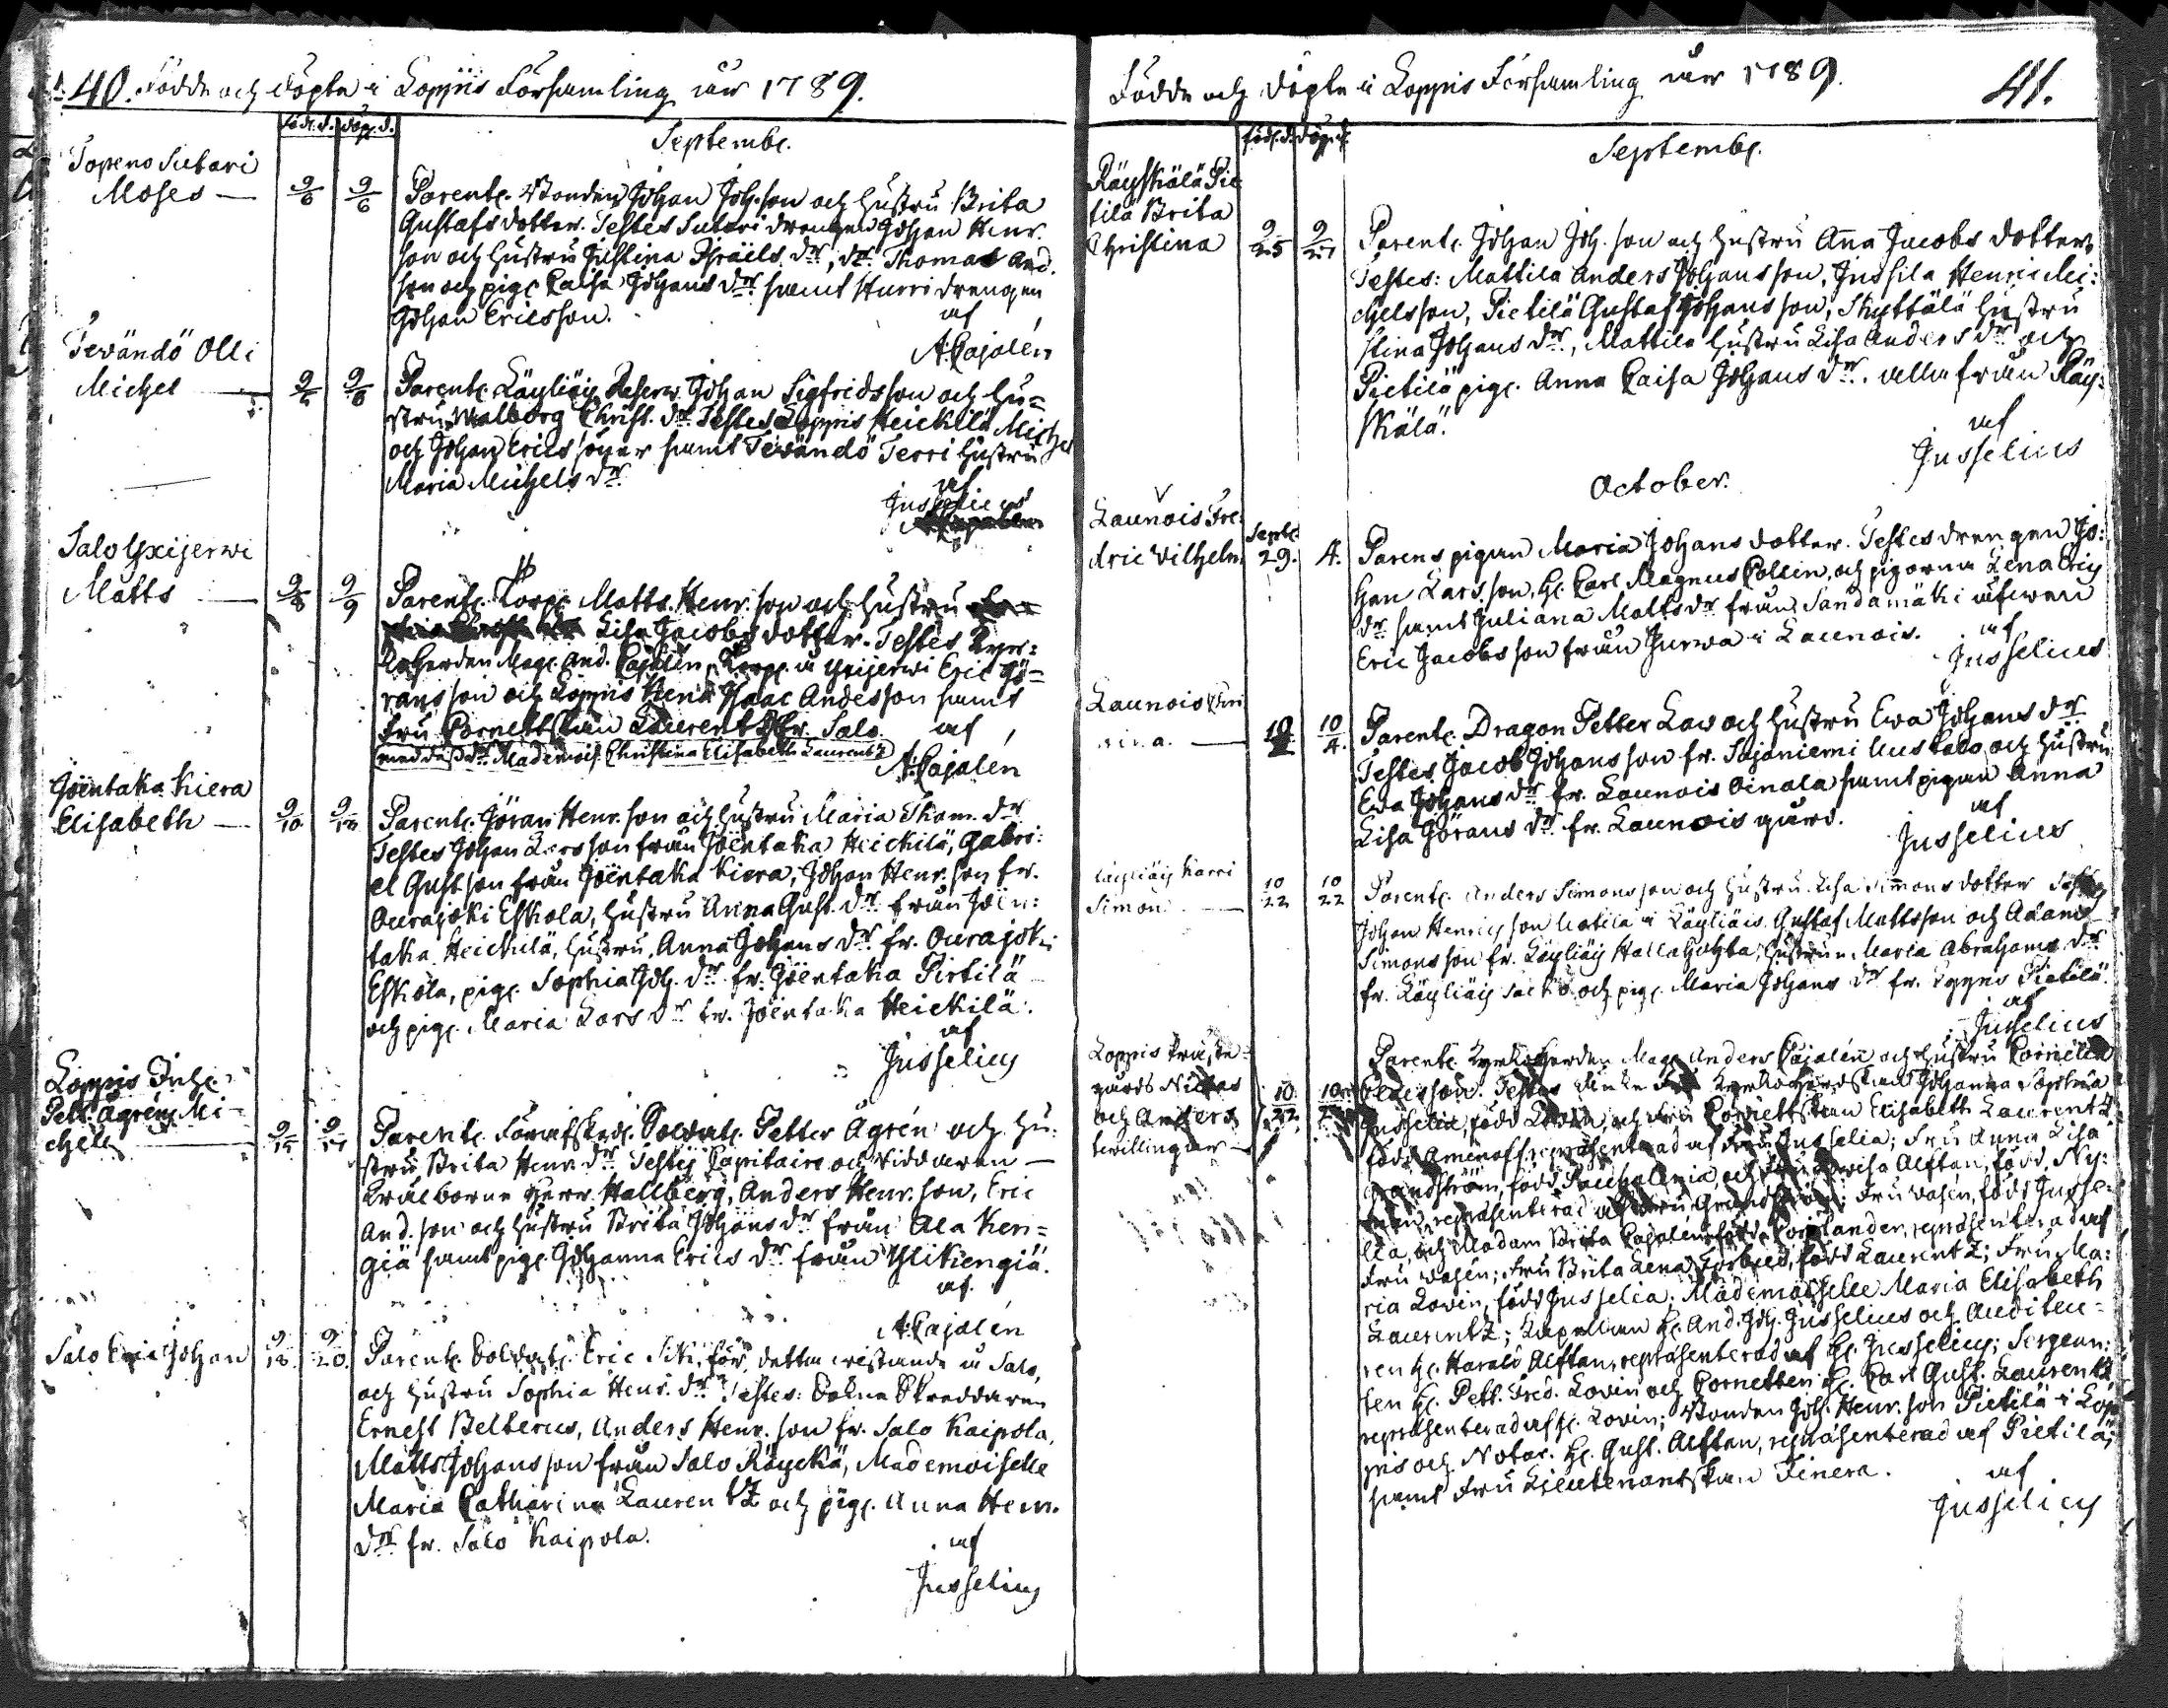 40. Födde och Döpte i Loppis Församling år 1789.
föd. d. döp. d.
Septembr.
Topeno Sutari
Moses — 9/6 9/6 Parent. Bonden Johan Joh.son och hustru Brita
Gustafs dotter. Testes Sutari drengen Johan Henr.
son och hustru Justina Israels dr, dr Thomas And.
son och pig. Caisa Johans dr samt Hurri drengen
Johan Ericsson. af
A: Cajalén
Tevändö Olli
Michel — 9/ 9/6 Parent. Läyliäis Reserv. Johan Sigfridsson och hu=
stru Walborg Christ. dr Testes Loppis Heickilä Michel
och Johan Erics söner samt Tevändö Terri hustru
Maria Michels dr
af
Jusselius
Salo Yxijerwi
Matts — 9/8 9/9 Parent. Torp. Matts Henr.son och hustru
Lisa Jacobs dotter. Testes Kyr=
koherden Mag. And. Cajalén, Torp. i Yxijerwi Eric Gö=
rans son och Loppis Isaac Andesson samt
Fru Cornettskan Laurentz fr. Salo. af
med dess dr Mademois. Christina Elisabeth Laurentz
A: Cajalén
Joentaka Kiera
Elisabeth — 9/10 9/13 Parent. Göran Henr.son och hustru Maria Thom. dr
Testes Johan Larsson från Joentaka Heickilä, Gabri:
el Gust.son från Joentaka Kiera, Johan Henr.son fr.
Ourajoki Eskola, hustru Anna Gust. dr från Joen:
taka Heickilä, hustru Anna Johans dr fr. Ourajoki
Eskola, pig. Sophia Joh. dr fr. Joentaka Pirtilä
och pig. Maria Lars dr fr. Joentaka Heickilä.
af
Jusselius
Loppis Inh.
Pett. Ågrén Mi-
chell — 9/15 9/17 Parent. Förafsked. Soldat. Petter Ågrén och hu:
stru Brita Henr. dr Testes Capitaine och Riddaren —
Wälborne Herr Hallberg, Anders Henr.son, Eric
And.son och hustru Brita Johans dr från Ala Ken=
giä samt pig. Johanna Erics dr från Ylikengiä.
af
A: Cajalén
Salo Eric Johan 9/18. 9/20. Parent. Soldat. Eric Sik, för detta vistande i Salo,
och hustru Sophia Henr. dr Testes: Sokne Skreddaren
Ernest Belterus, Anders Henr.son fr. Salo Kaipola,
Matts Johansson från Salo Räyckä, Mademoiselle
Maria Catharina Laurentz och pig. Anna Henr.
dr fr. Salo Kaipola.
af
Jusselius
Födde och döpte i Loppis Församling år 1789. 41.
föd. d. döp. d.
Septembr.
Räyskälä Pie
tilä Brita
Christina 9/25 9/27 Parent. Johan Joh.son och hustru Anna Jacobs dotter
Testes: Mattila Anders Johansson, Jussila Henric Mi:
chelsson, Pietilä Gustaf Johansson, Skyttälä hustru
Stina Johans dr, Mattila hustru Lisa Anders dr och
Pietilä pig. Anna Caisa Johans dr. alla från Räy:
skälä.
af
Jusselius
October.
Launois Fre:
dric Vilhelm Septr 29. 4. Parens pigan Maria Johans dotter. Testes drengen Jo:
han Larsson, Hr. Carl Magnus Collin, och pigorna Lena Erics
dr samt Juliana Matts dr från Sandamäki äfwen
Eric Jacobsson från Jurwa i Launois. af
Jusselius
Launois Chri
stina. — 10/ 10/4. Parent. Dragon Petter Lar och hustru Ewa Johans dr
Testes Jacob Johansson fr. Sajaniemi och hustru
Ewa Johans dr fr. Launois Oinala samt pigan Anna
Lisa Görans dr fr. Launois gård. af
Jusselius
Läyliäis Karri
Simon — 10/22 10/22 Parent. Anders Simonsson och hustru Lisa Simons dotter Testes
Johan Henricsson Matila i Läyliäis, Gustaf Mattsson och Adam
Simonsson fr. Läyliäis Hallahuhta, hustrun Maria Abrahams dr
fr. Läyliäis och pig. Maria Johans dr fr. Pietilä.
af
Jusselius
Loppis Präste
gårds Niclas
och Anders
tvillingar — 10/22. 10/ Parent. Kyrkoherden Mag. Anders Cajalén och hustru Cornelia
Testes Johanna Sophia
Jusselia, född Lovin, och Fru Cornettskan Elisabeth Laurentz
född Amenoff representerad af Fru Jusselia; Fru Anna Lisa
Grandström, född Pacchalenia, och Lovisa Alftan, född Ny:
man, representerad af Fru Grandström; Fru Vasén, född Jusse:
lia, och Madam Brita Cajalén, född Forslander, representerad af
Fru Vasén; Fru Brita Lena Forbus, född Laurentz; Fru Ma:
ria Lovin, född Jusselia. Mademoiselle Maria Elisabeth
Laurentz; Capellan Hr. And. Joh. Jusselius och Auditeu=
ren Hr. Harald Alftan, representerad af Hr. Jusselius; Sergean:
ten Hr. Pett. Fred. Lovin och Cornetten Hr. Carl Gust. Laurentz
representerad af Hr. Lovin; Bonden Joh. Henr.son Pietilä i Lop
pis och Notar. Hr. Gust. Alftan, representerad af Pietilä,
samt Fru Lieutenantskan Finera. af
Jusselius